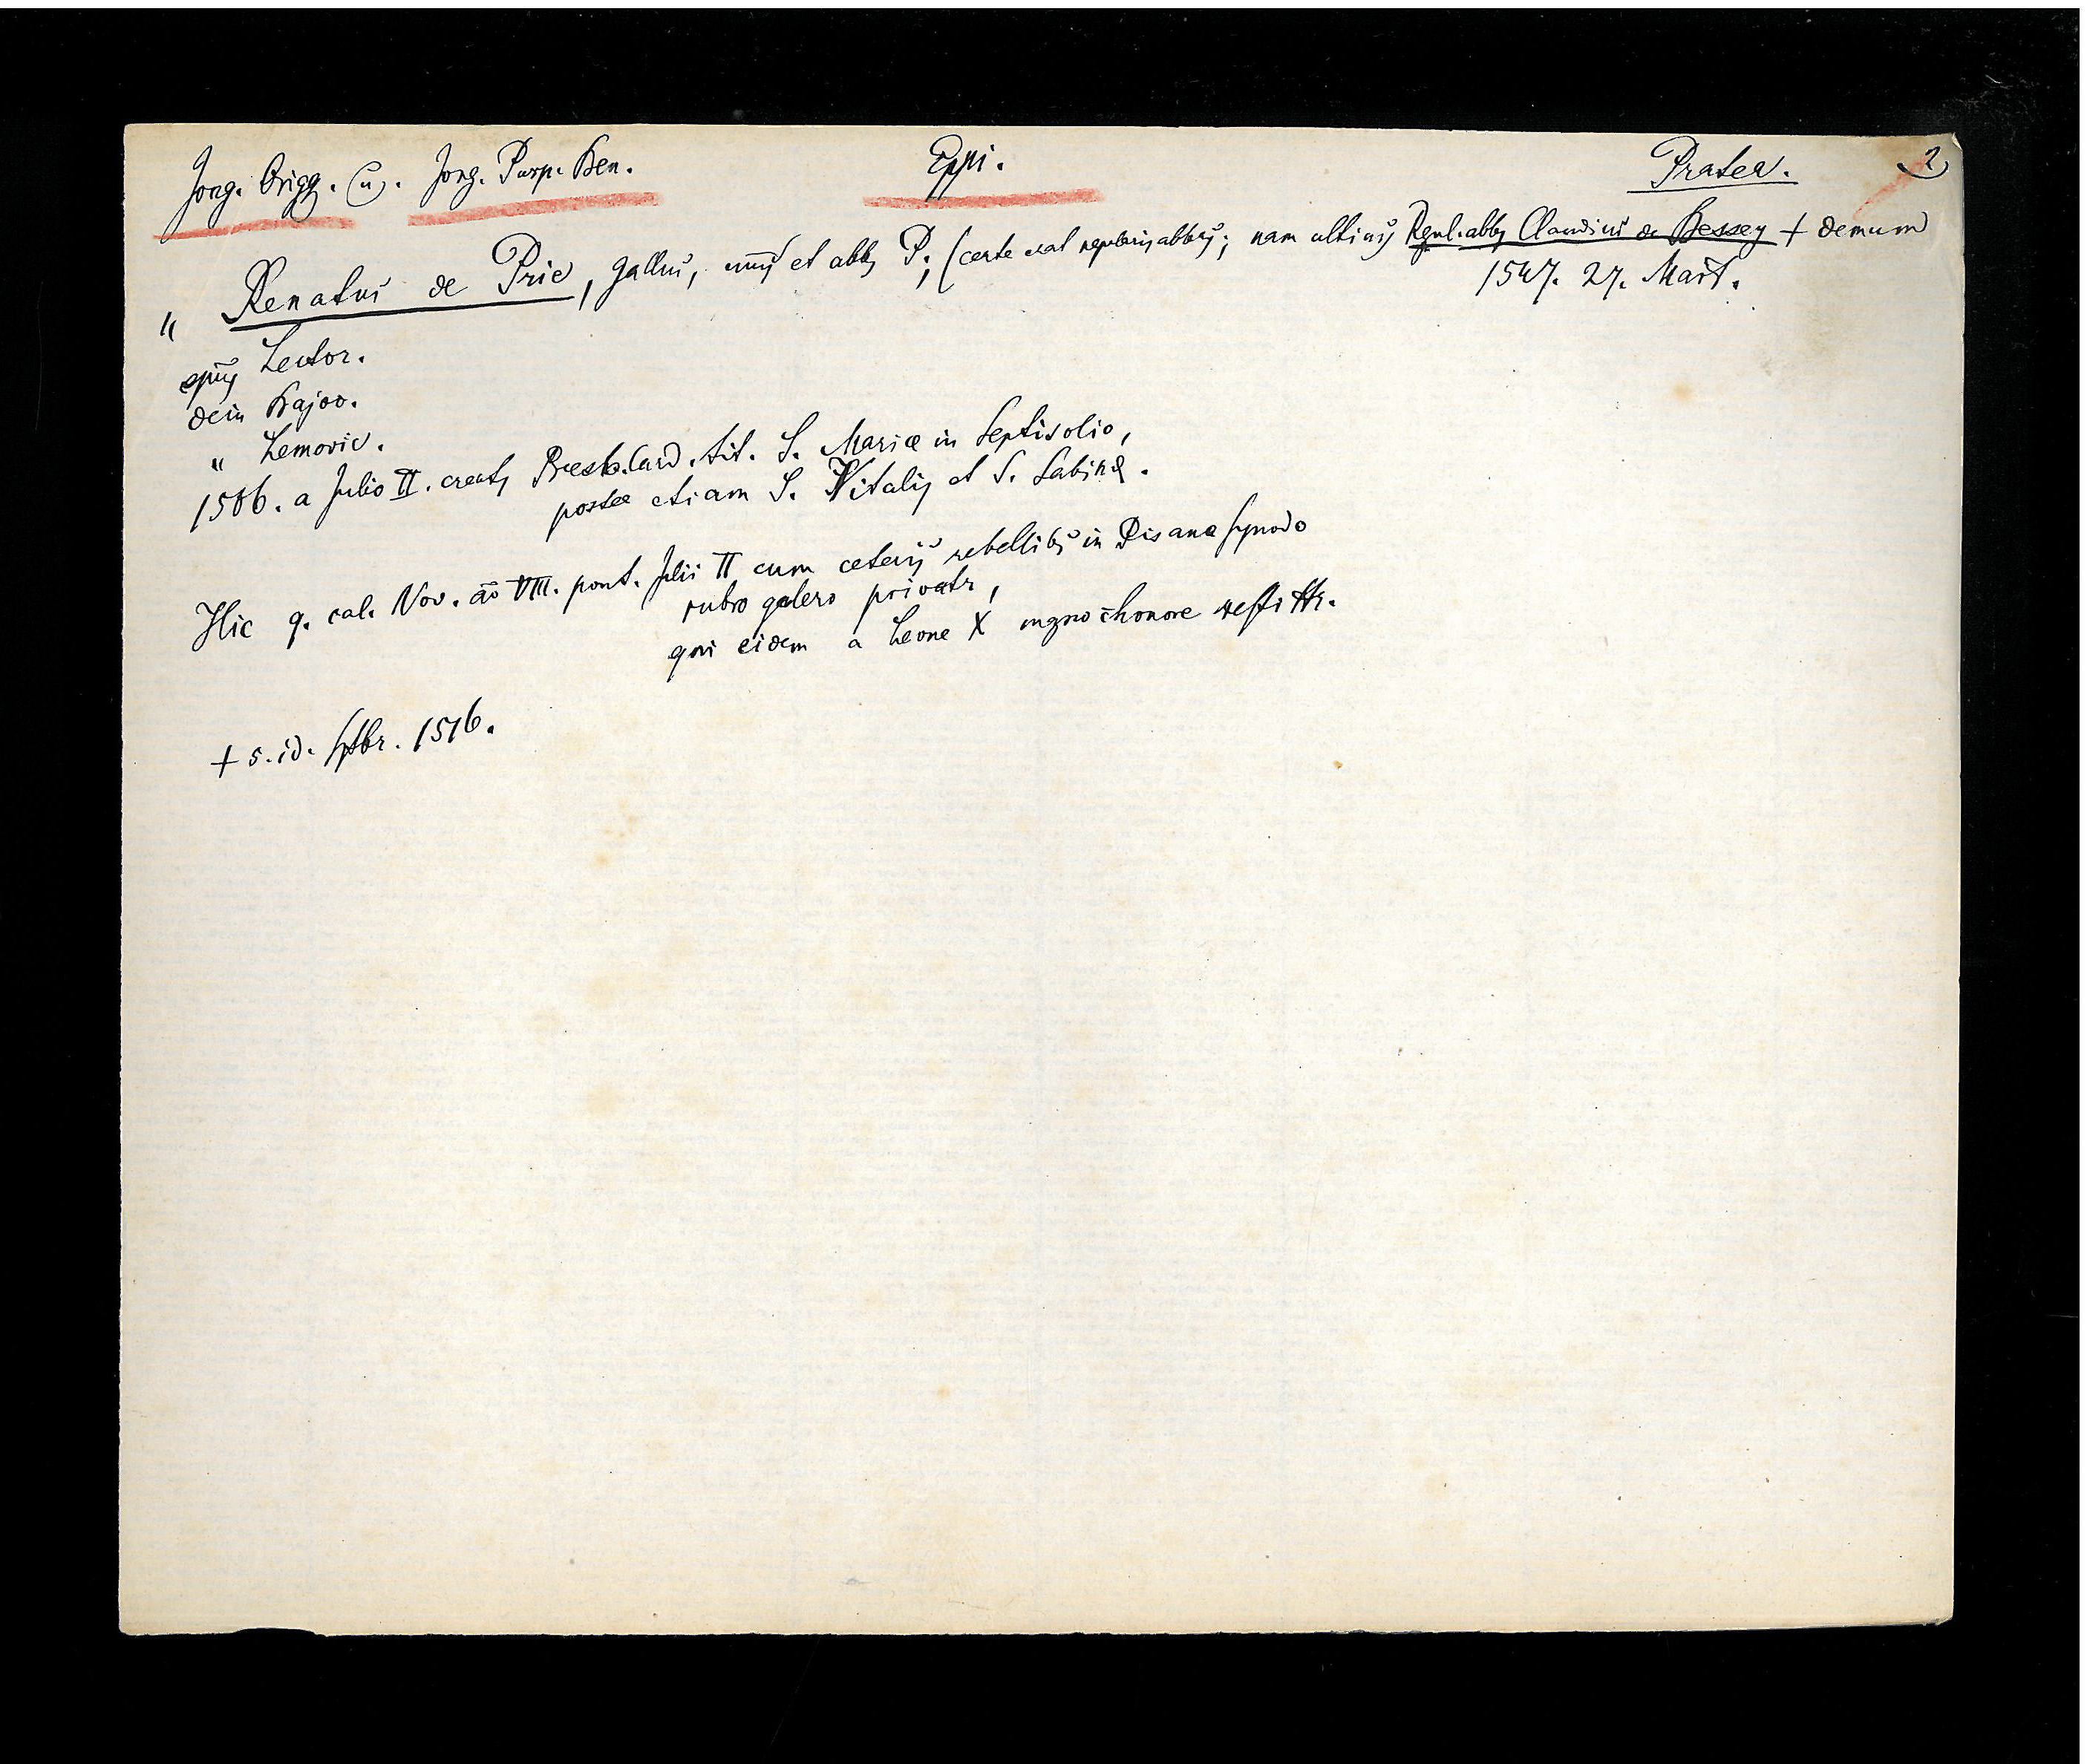 Jong. Origg. (u). Jong. Purp. Ben. Eppi. Pratea. 2
" Renatus de Prie, gallus, et abb, P; (certe erat regularis abb; nam ultimus Regul. abb, Claudius de Bessey + demum
1547. 27. Mart.
epus Lector.
dein Bajoc.
" Lemovic.
1506. a Julio II. creat, Presb. Card. tit. S. Mariæ in Septisolio,
postea etiam S. Vitalis et S. Sabinæ.
Hic 9. cal. Nov. ao VIII. pont. Julii II cum ceteris rebellibs in Pisana synodo
rubro galero privatr,
qui eidem a Leone X mgno honore restittr.
+ 5. id. Sptbr. 1516.